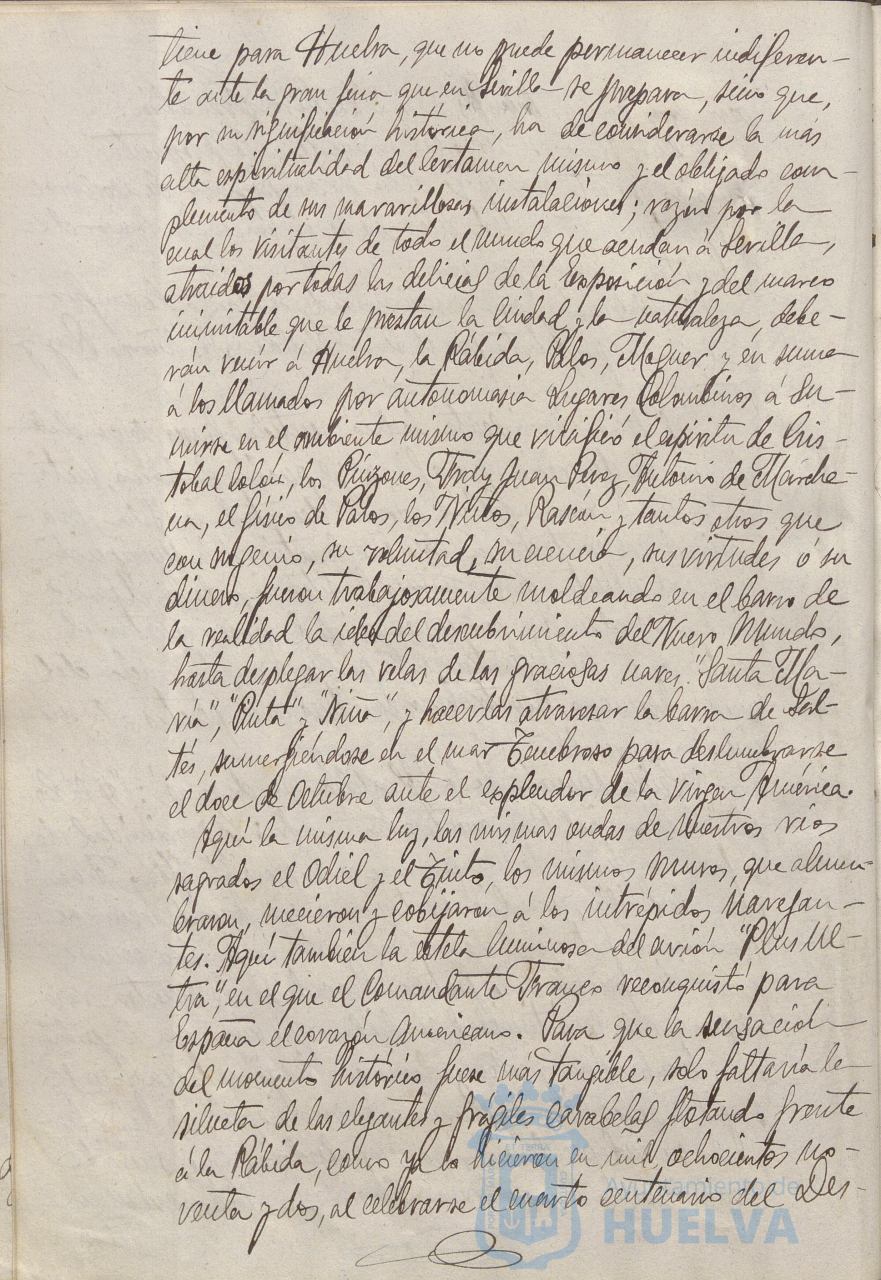 tiene para Huelva, que no puede permanecer indiferen-
te ante la gran feria que en Sevilla se prepara, sino que,
por su significación histórica, ha de considerarse la más
alta espiritualidad del Certamen mismo y el obligado com-
plemento de sus maravillosas instalaciones; razón por la
cual los visitantes de todo el mundo que acudan á Sevilla,
atraidos por todas las delicias de la Exposición y del marco
inimitable que le prestan la Ciudad y la naturaleza, debe-
rán venir á Huelva, la Rábida, Palos, Moguer y en suma
á los llamados por antonomasia Lugares Colombinos á su-
mirse en el ambiente mismo que vivificó el espíritu de Cris-
tobal Colón, los Pinzones, Fray Juan Perez, Antonio de Marche-
na, el físico de Palos, los Niños, Rascón y tantos otros que
con su genio, su voluntad, su ciencia, sus virtudes ó su
dinero, fueron trabajosamente moldeando en el barro de
la realidad la idea del descubrimiento del Nuevo Mundo,
hasta desplegar las velas de las graciosas naves "Santa Ma-
ría", "Pinta" y "Niña", y hacerlas atravesar la barra de Sal-
tés, sumergiéndose en el mar Tenebroso para deslumbrarse
el doce de Octubre ante el esplendor de la virgen América.
Aquí la misma luz, las mismas ondas de nuestros rios
sagrados el Odiel y el Tinto, los mismos muros, que alum-
braron, mecieron y cobijaron á los intrépidos navegan-
tes. Aquí también la estela luminosa del avión "Plus Ul-
tra", en el que el Comandante Franco reconquistó para
España el corazón Americano. Para que la sensación
del momento histórico fuese más tangible, solo faltaría la
silueta de las elegantes y frágiles carabelas flotando frente
á la Rábida, como ya lo hicieron en mil ochocientos no-
venta y dos, al celebrarse el cuarto centenario del Des-
Ayuntamiento de
HUELVA